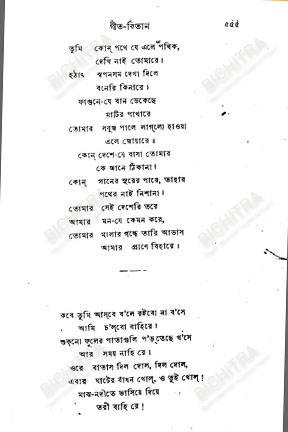 গীত-বিতান ৫৫৫
তুমি কোন্ পথে যে এলে পথিক,
দেখি নাই তোমারে।
হঠাৎ স্বপনসম দেখা দিলে
বনেরি কিনারে।
ফাগুনে-যে বান ডেকেছে
মাটির পাথারে
তোমার সবুজ পালে লাগ্‌লো হাওয়া
এলে জোয়ারে।
কোন্ দেশে-যে বাসা তোমার
কে জানে ঠিকানা।
কোন্ গানের সুরের পারে, তাহার
পথের নাই নিশানা।
তোমার সেই দেশেরি তরে
আমার মন-যে কেমন করে,
তোমার মালার গন্ধে তারি আভাস
আমার প্রাণে বিহারে।
কবে তুমি আস্‌বে ব'লে রইবো না ব'সে
আমি চ'ল্‌বো বাহিরে।
শুক্‌নো ফুলের পাতাগুলি প'ড়্‌তেছে খ'সে
আর সময় নাহি রে।
ওরে বাতাস দিল দোল, দিল দোল,
এবার ঘাটের বাঁধন খোল্, ও তুই খোল্!
মাঝ-নদীতে ভাসিয়ে দিয়ে
তরী বাহি রে!
BICHITRA